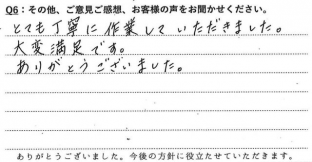 Q6：その他、ご意見ご感想、お客様の声をお聞かせください。
とても丁寧に作業していただきました。
大変満足です。
ありがとうございました。
ありがとうございました。今後の方針に役立たせていただきます。